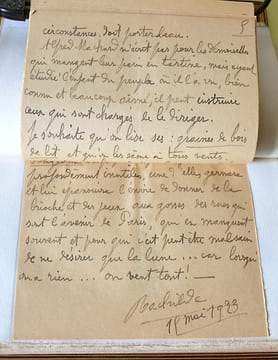 5
circonstances, doit porter beau.
Alfred Machard n'écrit pas pour les demoiselles
qui mangent leur pain en tartine, mais ayant
étudié l'enfant du peuple où il l'a vu, bien
connu et beaucoup aimé, il peut instruire
ceux qui sont chargés de le diriger.
Je souhaite qu'on lise ses : graines de bois
de lit et qu'on les sème à tous vents.
profondément inutiles, une d'elles germera
et lui épanouira l'envie de donner de la
brioche et des jeux aux gosses des rues qui
sont l'avenir de Paris, qui en manquent
souvent et pour qui c'est peut être malsain
de ne désirer que la lune ... car lorsqu'
on a rien ... on veut tout !
Rachilde
19 mai 1923